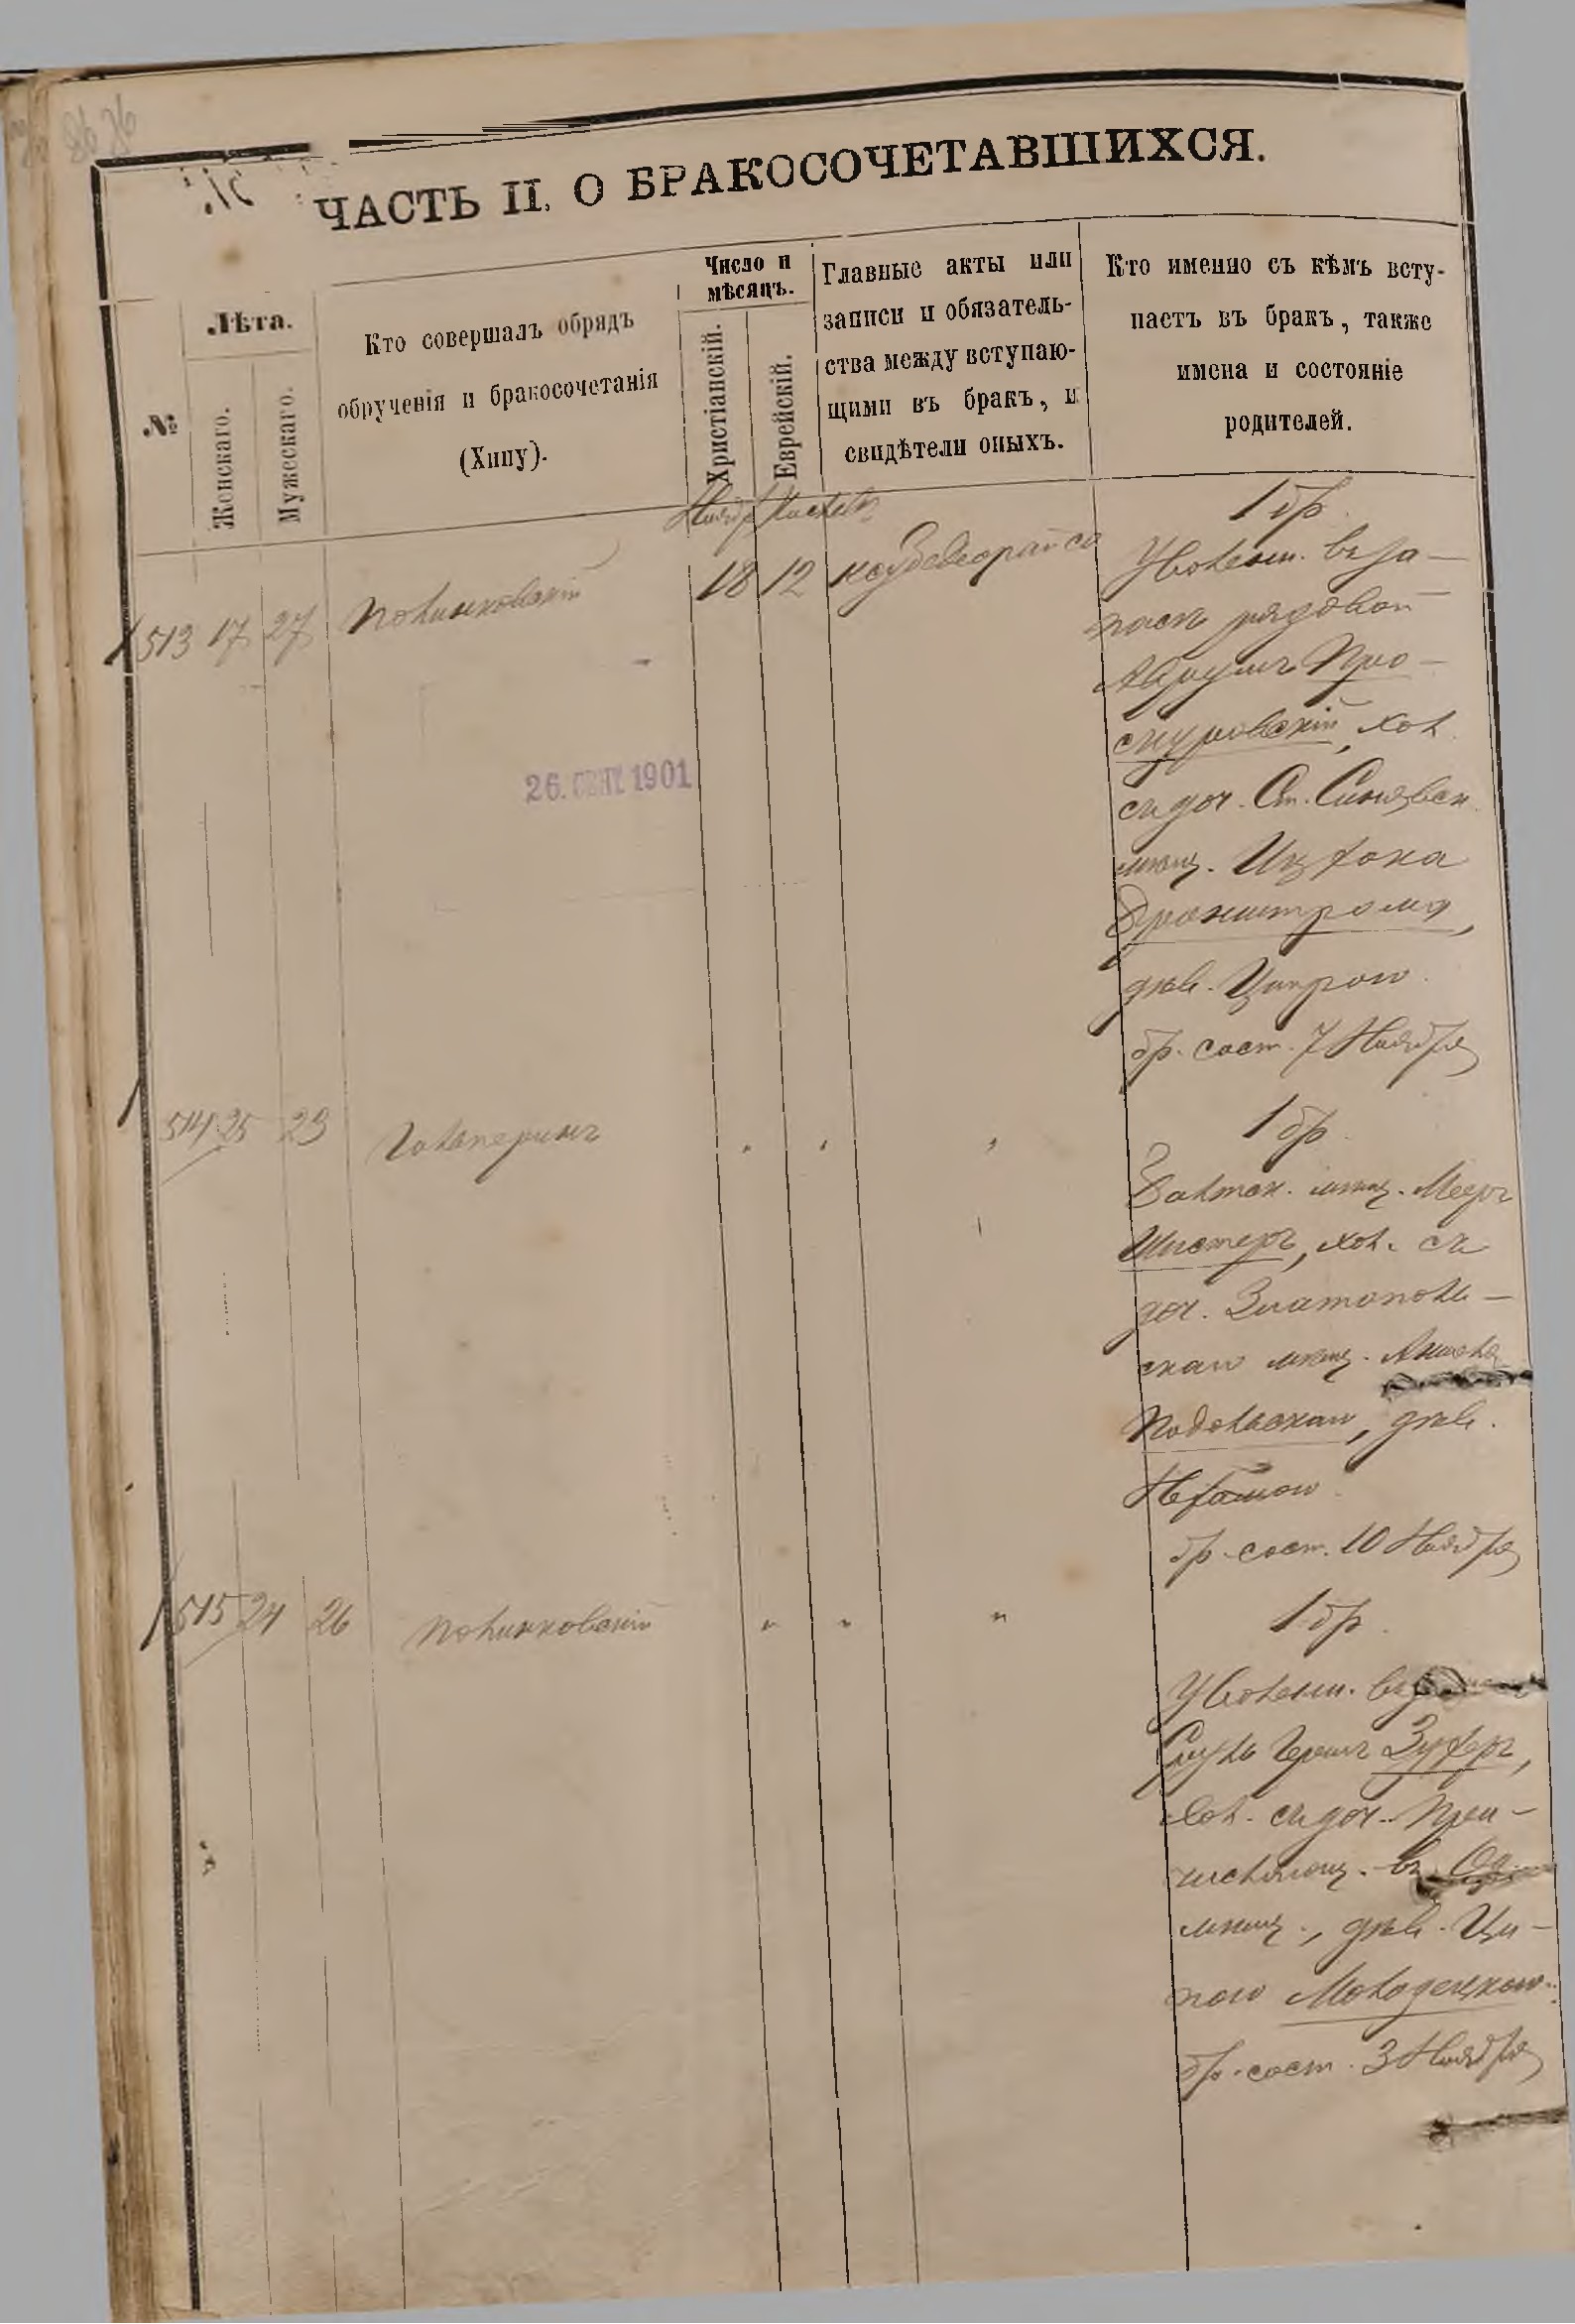 ЧАСТЬ II. О БРАКОСОЧЕТАВШИХСЯ.
№
Лѣта.
Женскаго.
Мужескаго.
Кто совершалъ обрядъ
обрученія и бракосочетанія
(Хипу).
Число и
мѣсяцъ.
Христіанскій.
Еврейскій.
Главные акты или
записи и обязатель-
ства между вступаю-
щими въ бракъ, и
свидѣтели оныхъ.
Кто именно съ кѣмъ всту-
паетъ въ бракъ, также
имена и состояніе
родителей.
Ноябр Кислев
513 17 27 Полинковскій 18 12
1 бр.
Уволен. въ за-
пасъ рядовой
Аврумъ Про-
скуровскій, хол.
съ доч. Ст. Синявск.
мѣщ. Ицхока
дѣв. Ципрою.
бр. сост. 7 Ноября
26. СЕНТ. 1901
514 25 23 Гальперинъ " " "
1 бр.
мѣщ. Мееръ
Шистеръ, хол. съ
доч. Златополь-
скаго мѣщ.
Подольскаго, дѣв.
Нехамою.
бр. сост. 10 Ноября
515 24 26 Полинковскій " " "
1 бр.
Уволен. въ
Сруль Гершъ Зухеръ,
хол. съ доч. При-
числяющ. въ
мѣщ., дѣв. Ци-
пою Молодецкою.
бр. сост. 3 Ноября